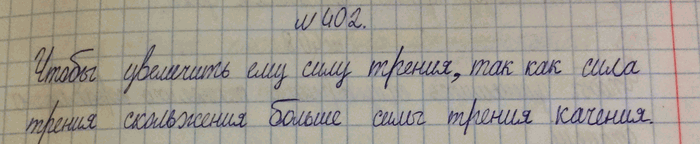 № 402.
Чтобы увеличить ему силу трения, так как сила
трения скольжения больше силы трения качения.